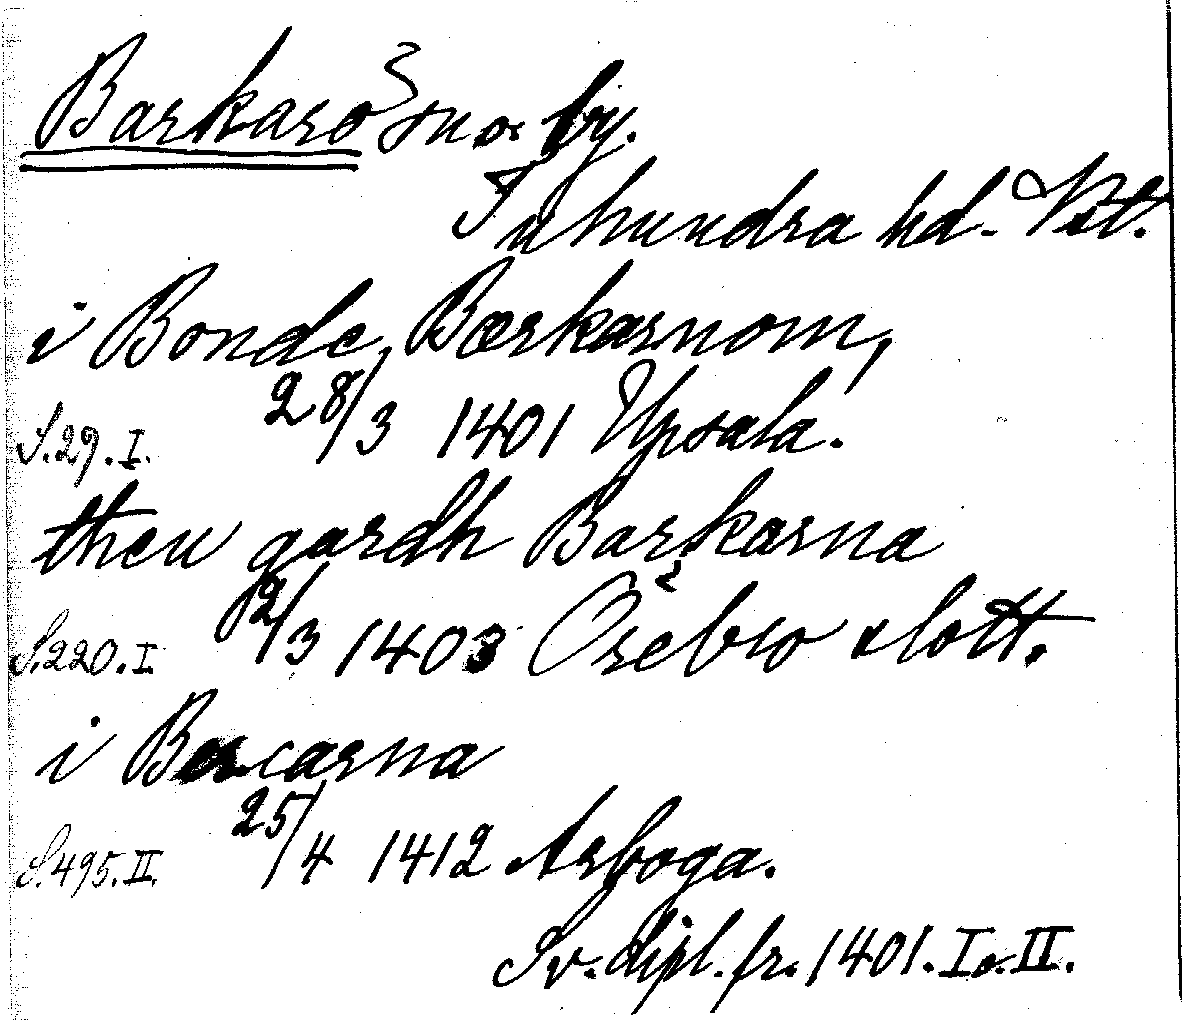 Barkarö sn. o. by.
Tuhundra hd. Vstl.
i Bonde Bærkarnom,
28/3 1401 Upsala.
S. 29. I.
then gardh Barkarna
12/3 1403 Örebro slott.
S. 220. I.
i Bercarna
25/4 1412 Arboga.
S. 495. II.
Sv. dipl. fr. 1401. I o. II.